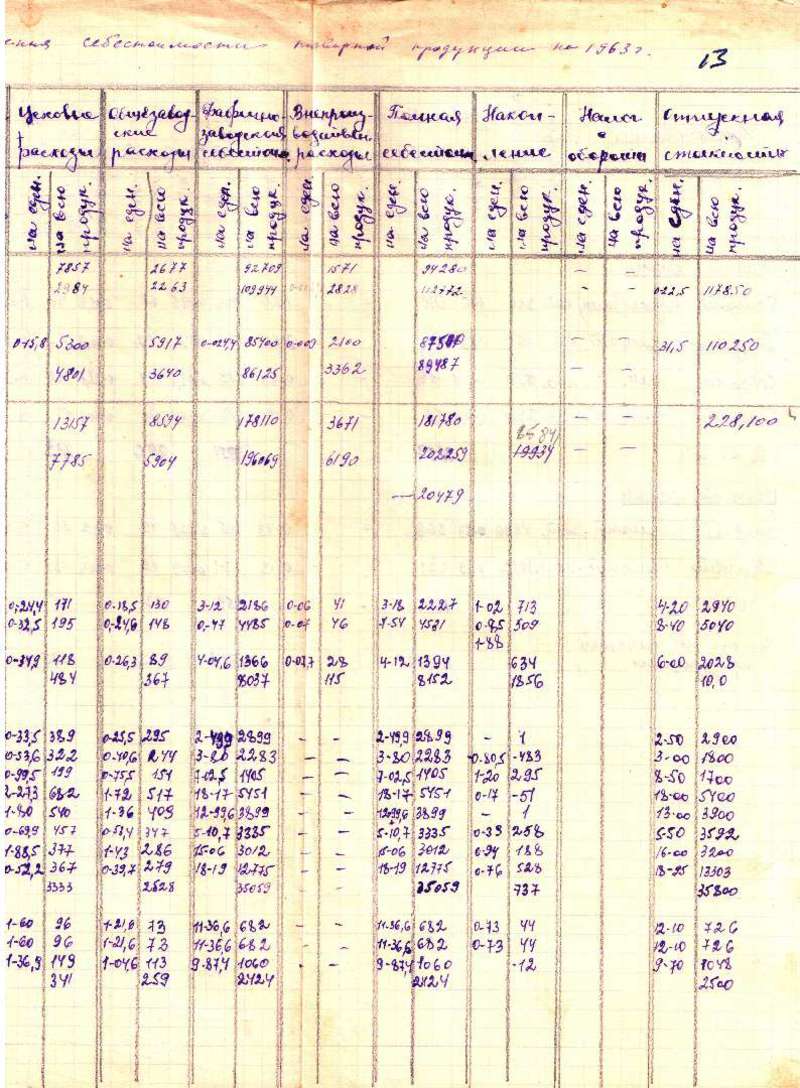 ения себестоимости товарной продукции на 1963 г.
13
Цеховые Общезавод- Фабрично- Внепроиз- Полная Накоп- Налог Отпускная
ские заводская водствен. с
расходы расходы себестоим. расходы себестоим. ление оборота стоимость
на един. на всю продук. на един. на всю продук. на един. на всю продук. на един. на всю продук. на един. на всю продук. на един. на всю продук. на един. на всю продук. на един. на всю продук.
7857 2677 92709 1571 94280 - -
2984 2263 109944 2828 112772 - - 0-22,5 117850
0-15,8 5300 5917 0-024,4 85400 0-009 2100 87500 - - 31,5 110250
4801 3640 86125 3362 89487 - -
13157 8594 178110 3671 181780 - - 228,100
8584
7785 5904 196069 6190 202259 19934 - -
— 20479
0-24,4 171 0-18,5 130 3-12 2186 0-06 41 3-18 2227 1-02 713 4-20 2940
0-32,5 195 0-24,6 148 0-47 4485 0-07 46 7-54 4531 0-85 509 8-40 5040
1-88
0-34,9 118 0-26,3 89 4-04,6 1366 0-07,7 28 4-12 1394 634 6-00 2028
484 367 8037 115 8152 1856 10,0
0-33,5 389 0-25,5 295 2-49,9 2899 - - 2-49,9 2899 - 1 2-50 2900
0-53,6 322 0-40,6 244 3-80 2283 - - 3-80 2283 -0-80,5 -483 3-00 1800
0-99,5 199 0-75,5 151 7-02,5 1405 - - 7-02,5 1405 1-20 295 8-50 1700
2-27,3 682 1-72 517 18-17 5451 - - 18-17 5451 0-17 -51 18-00 5400
1-80 540 1-36 409 12-99,6 3899 - - 12-99,6 3899 - 1 13-00 3900
0-69,9 457 347 5-10,7 3335 - - 5-10,7 3335 0-39 258 5-50 3592
1-88,5 377 1-43 286 15-06 3012 - - 15-06 3012 0-94 188 16-00 3200
0-52,2 367 0-39,7 279 18-19 12775 - - 18-19 12775 0-76 528 18-95 13303
3333 2528 35059 35059 737 35800
1-60 96 1-21,6 73 11-36,6 682 - - 11-36,6 682 0-73 44 12-10 726
1-60 96 1-21,6 73 11-36,6 682 - - 11-36,6 682 0-73 44 12-10 726
1-36,9 149 1-04,6 113 9-87,4 1060 - - 9-87,4 1060 -12 9-70 1048
341 259 2424 2424 2500